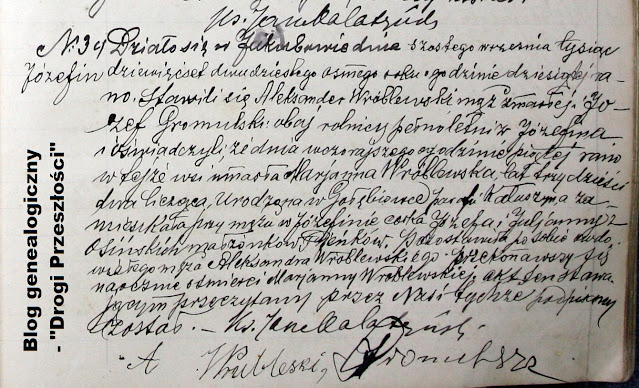 Ks. Jan Kalatzuch
N. 34 Działo się w Jakubowie dnia szóstego września tysiąc
Józefin dziewięćset dwudziestego ósmego roku o godzinie dziesiątej ra-
no. Stawili się Aleksander Wróblewski mąż zmarłej i Jó-
zef Gromulski obaj rolnicy pełnoletni z Józefina
i oświadczyli że dnia wczorajszego o godzinie piątej rano
w tejże wsi umarła Marjanna Wróblewska, lat trzydzieści
dwa licząca, urodzona w Gołębiówce parafji Kałuszyn a za-
mieszkała przy mężu w Józefinie córka Józefa i Juljanny z
Osińskich małżonków. Pozostawiła po sobie owdo-
wiałego męża Aleksandra Wróblewskiego. Przekonawszy się
naocznie o śmierci Marjanny Wróblewskiej, akt ten stawa-
jącym przeczytany przez Nas i tychże podpisany
został. – Ks. Jan
A Wrubleski,
Blog genealogiczny
- "Drogi Przeszłości"